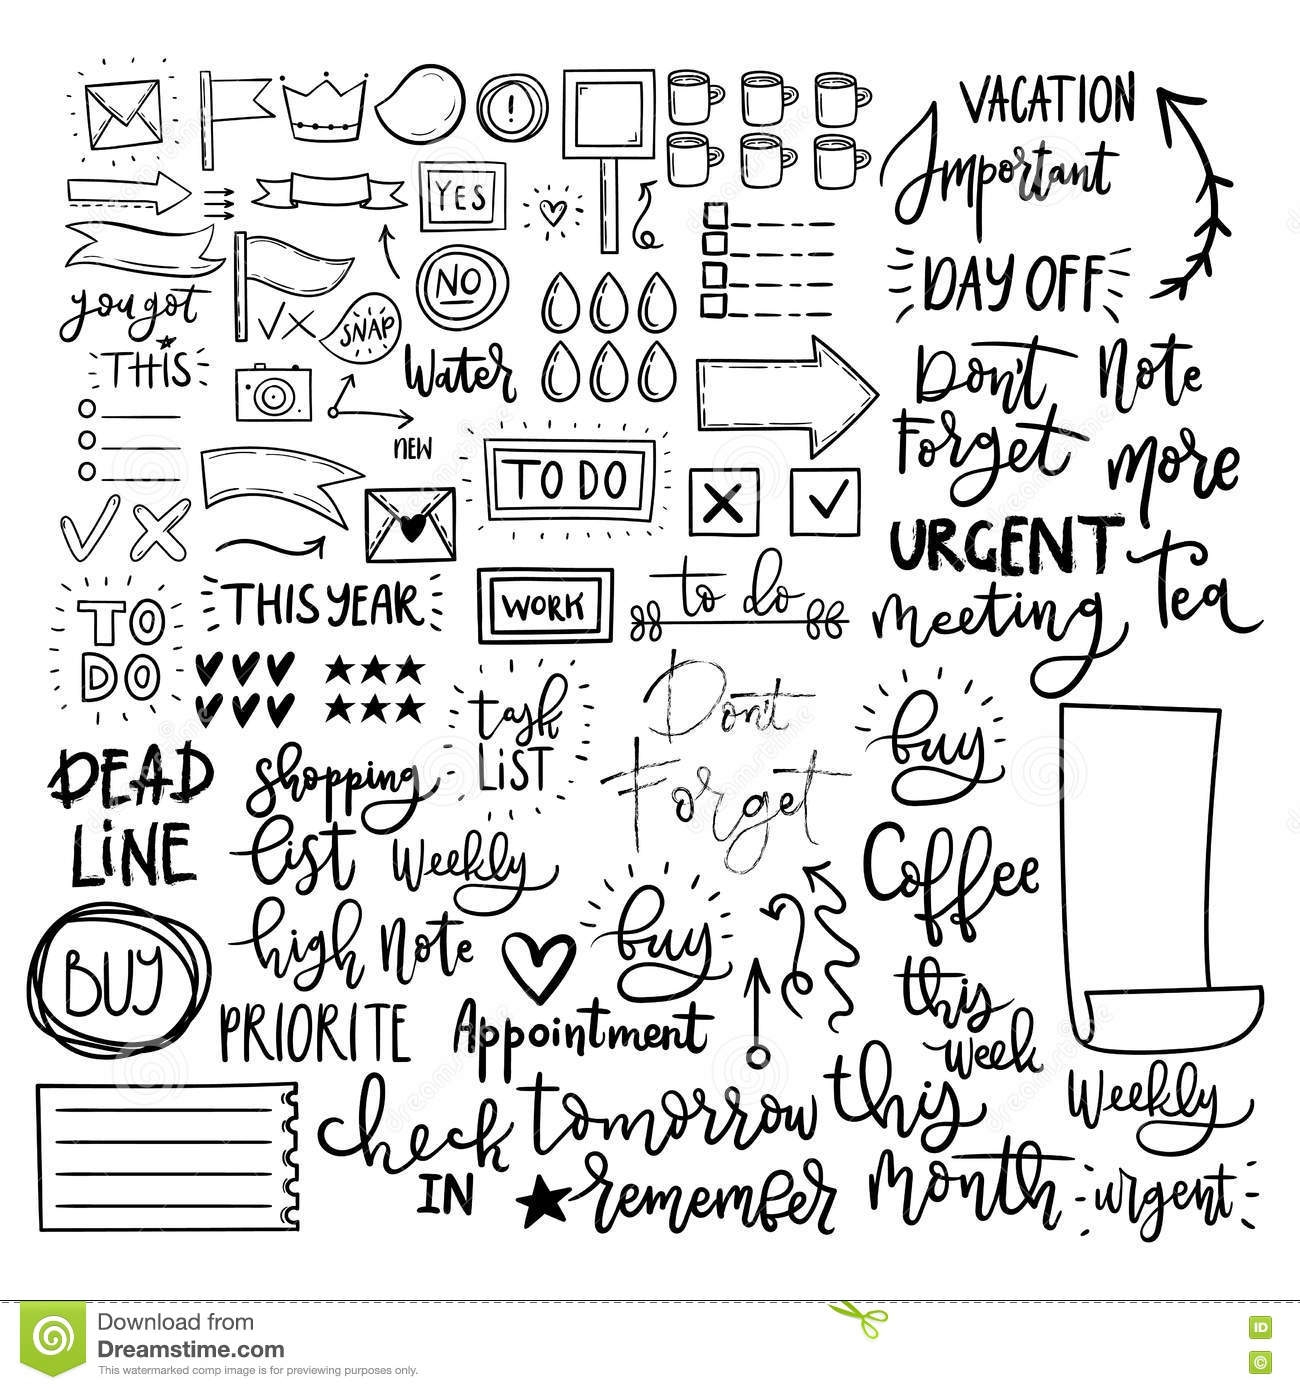 VACATION
Important
YES
DAY OFF
NO
you got
THIS
SNAP
Water
Don't
Forget
Note
NEW
TO DO
more
URGENT
meeting
Tea
TO
DO
THIS YEAR
WORK
to do
task
LIST
Don't
Forget
buy
DEAD
LINE
shopping
list
Weekly
Coffee
BUY
high Note
buy
PRIORITE
Appointment
this
week
check
IN
tomorrow
remember
this
month
Weekly
urgent
Download from
Dreamstime.com
This watermarked comp image is for previewing purposes only.
ID
©